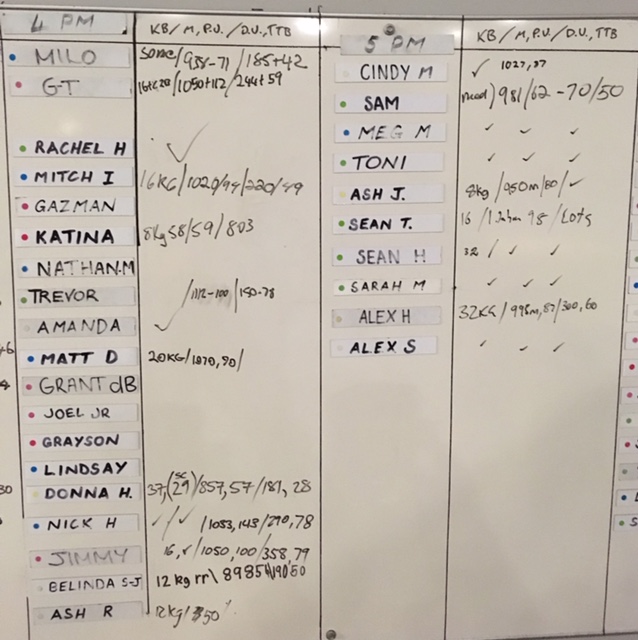 4 PM KB/M,P.U./D.U.,TTB
MILO some/938-71/185+42
GT 16+20/1050+112/244+59
RACHEL H ✓
MITCH I 16KG/1020/94/220/49
GAZMAN
KATINA 8kg 58/59/803
NATHAN.M
TREVOR /1112-100/150-78
AMANDA ✓
MATT D 20KG/1070,90/
GRANT dB
JOEL JR
GRAYSON
LINDSAY
DONNA H. 37,(29)/857,57/181,28
NICK H ✓/✓/1053,143/290,78
JIMMY 16,✓/1050,100/358,79
BELINDA S-J 12 kg rr\ 8985
ASH R 12kg/
5 PM KB/M,P.U./D.U.,TTB
CINDY M ✓ 1027,37
SAM 981/62-70/50
MEG M ✓ ✓ ✓
TONI ✓ ✓ ✓
ASH J. 8kg/950m/80/✓
SEAN T. 16 / 98/Lots
SEAN H 32/ ✓ ✓
SARAH M ✓ ✓ ✓
ALEX H 32KG/998m,87/300,60
ALEX S ✓ ✓ ✓